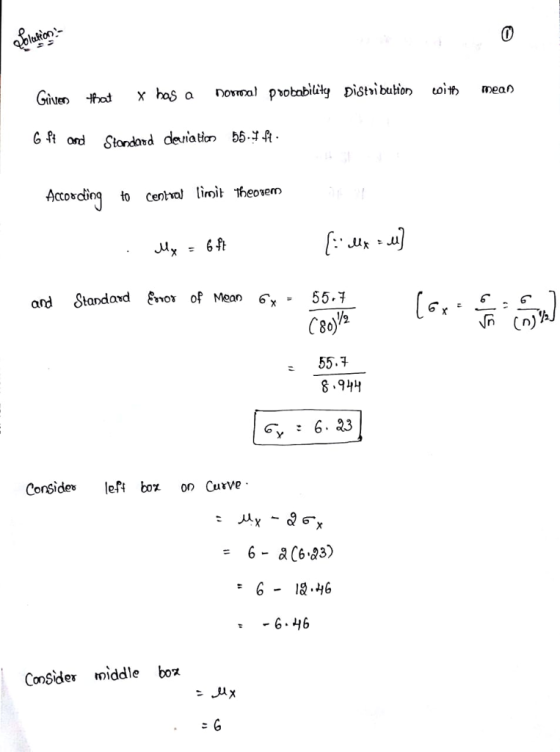 Solution:- ①
Given that x has a normal probability Distribution with mean
6 ft and Standard deviation 55.7 ft.
According to central limit Theorem
μx = 6 ft [∵ μx = μ]
and Standard Error of Mean σx = 55.7 / (80)^1/2 [σx = σ/√n = σ/(n)^1/2]
= 55.7 / 8.944
σx = 6.23
Consider left box on Curve.
= μx - 2σx
= 6 - 2(6.23)
= 6 - 12.46
= -6.46
Consider middle box
= μx
= 6